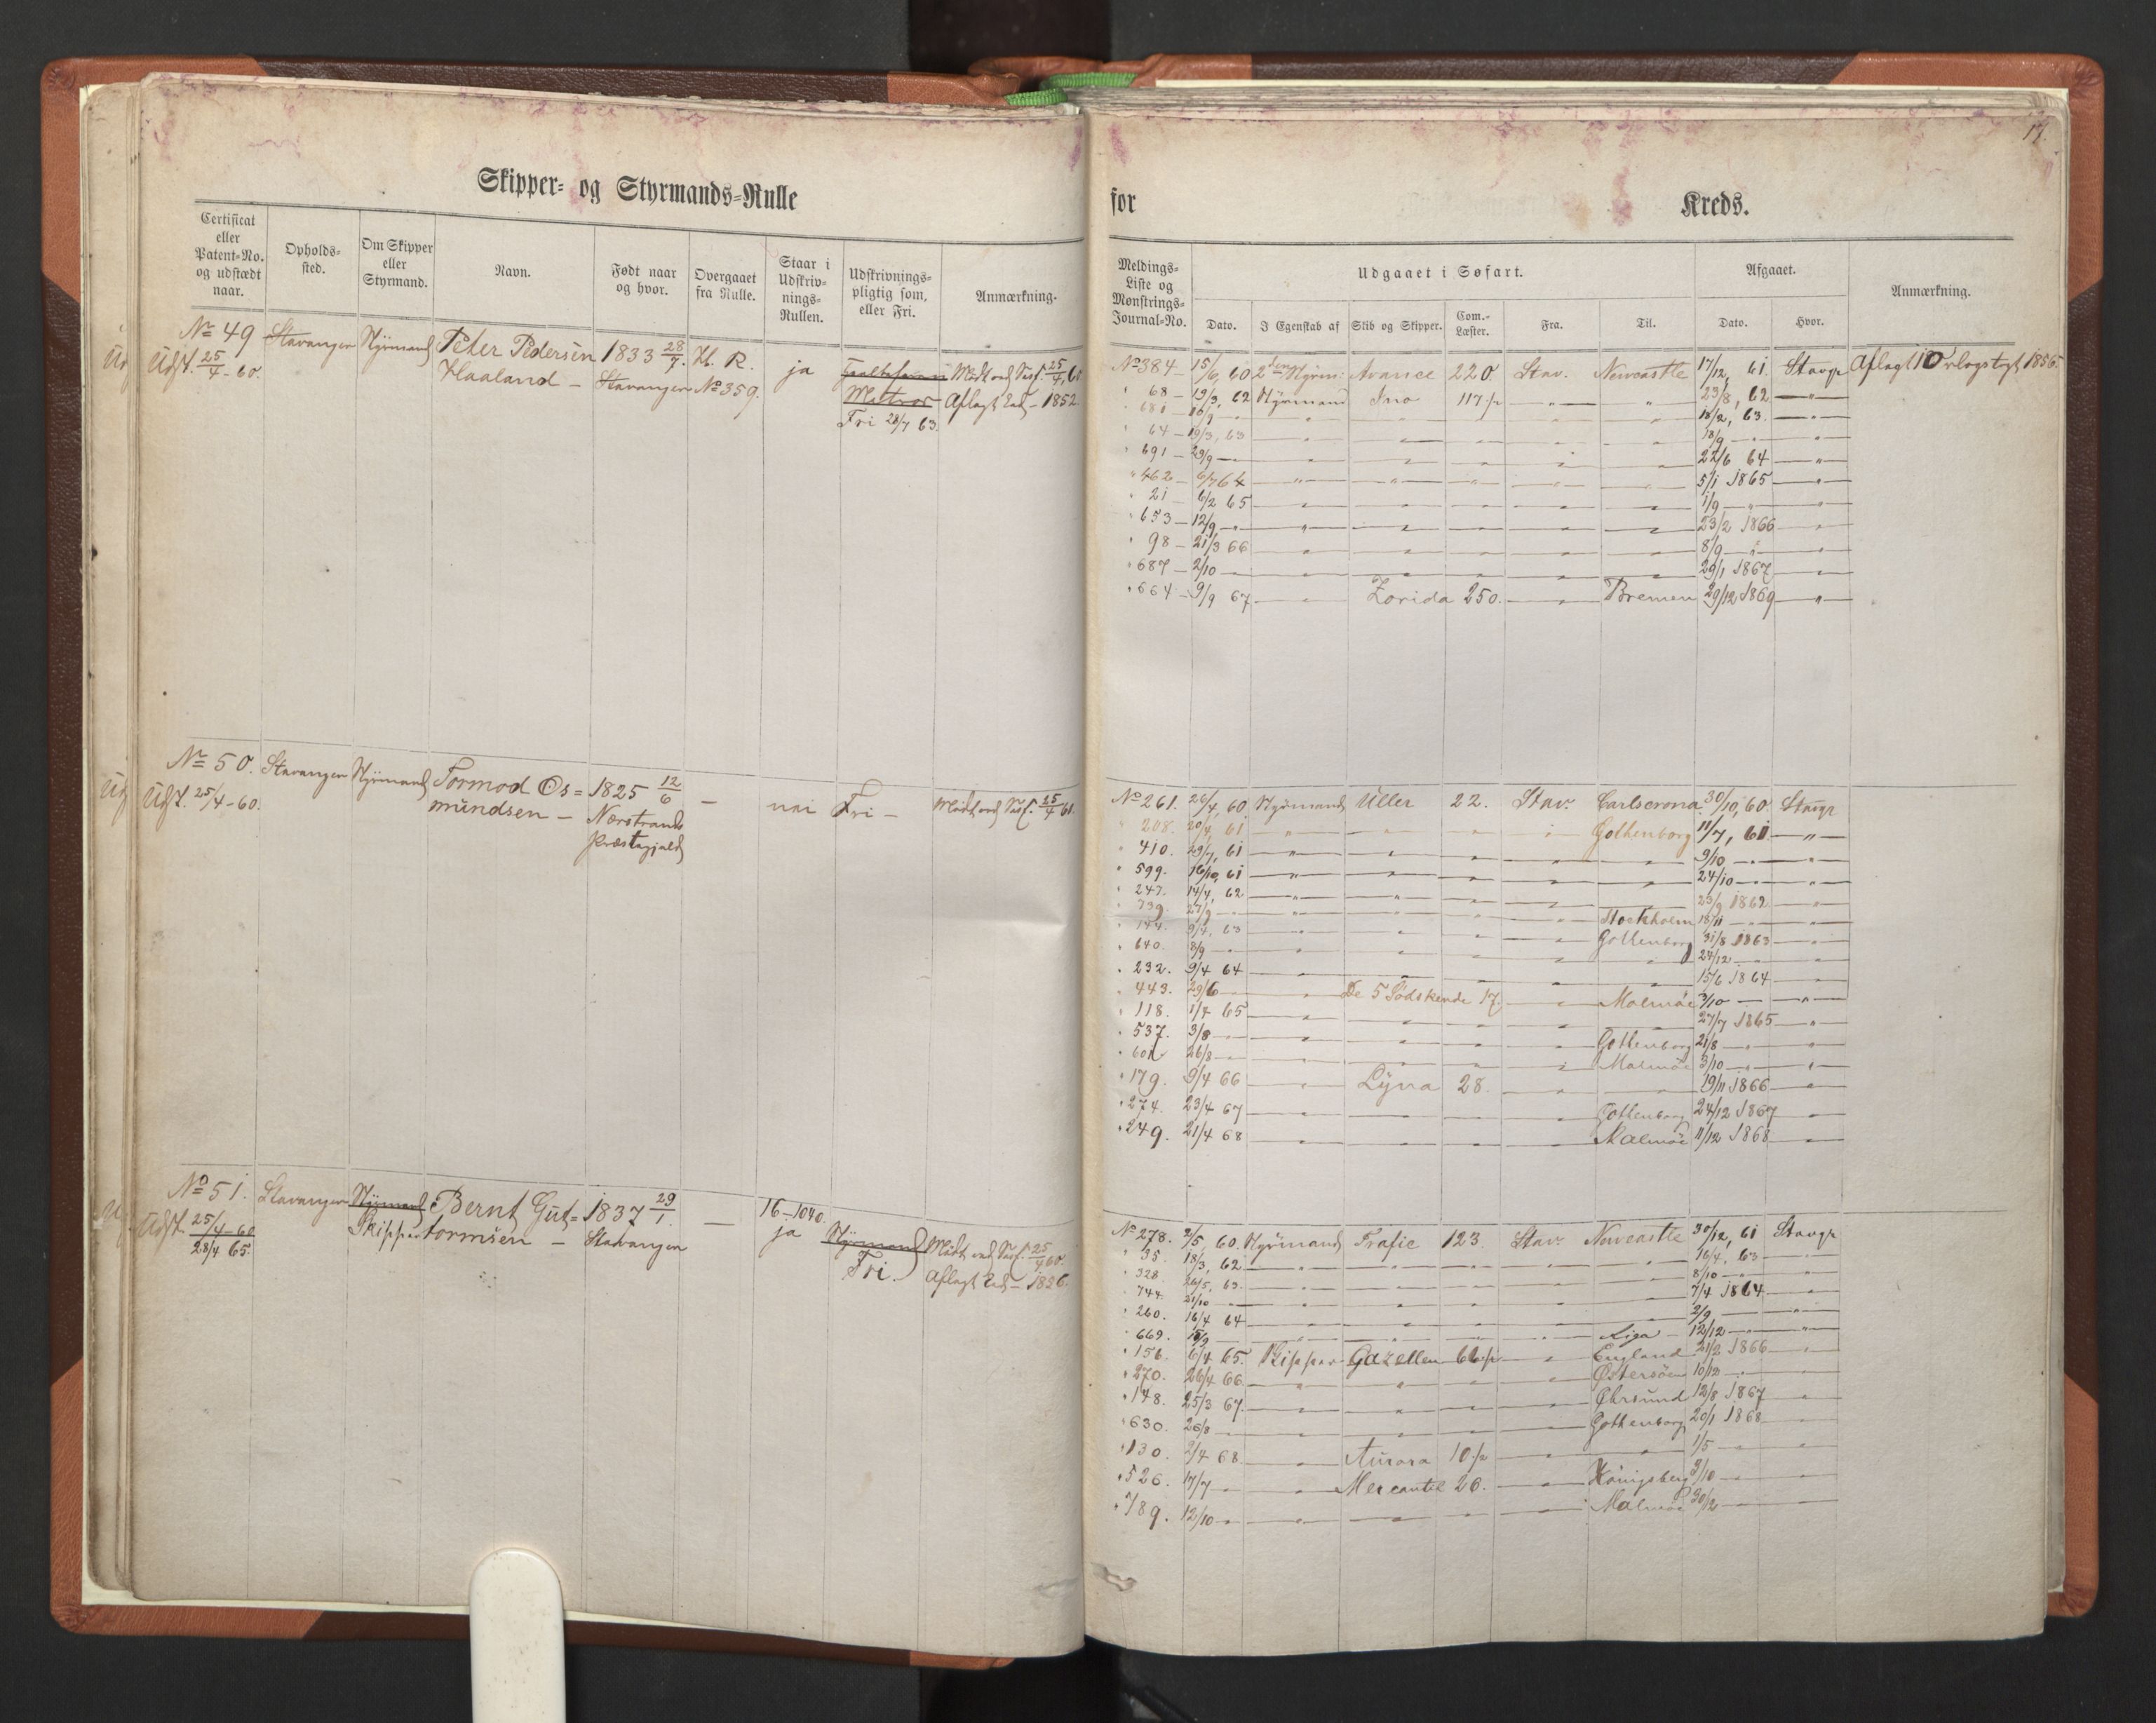 Skipper- og Styrmands-Rulle
Certificat eller Patent-No. og udstædt naar.
Opholds-sted.
Om Skipper eller Styrmand.
Navn.
Født naar og hvor.
Overgaaet fra Rulle.
Staar i Udskriv-nings-Rullen.
Udskrivnings-pligtig som, eller Fri.
Anmærkning.
No 49 Stavanger Styrmand Peter Pedersen 1833 28/7. H. R. ja Matros
Udst. 25/4 - 60. Haaland - Stavanger No 359. Fri 28/7 63. Aflagt Ed - 1852.
No 50. Stavanger Styrmand Tormod Os= 1825 12/6 - nei Fri -
Udst. 25/4 - 60. mundsen - Nærstrands
Præstegjeld
No 51. Stavanger Styrmand Bernt Gut= 1837 29/1. - 16-1040. ja Styrmand
Udst. 25/4 - 60 Skipper tormsen - Stavanger Fri.
28/4 65. Aflagt Ed - 1836.
14.
for Kreds.
Meldings-Liste og Mønstrings-Journal-No.
Udgaaet i Søfart.
Dato.
I Egenskab af
Skib og Skipper.
Com.-Læster.
Fra.
Til.
Afgaaet.
Dato.
Hvor.
Anmærkning.
No 384 - 15/6, 60 2den Styrm: Avance 220. Stav. Newcastle 17/12, 61. Stavgr Aflagt i Orlogstogt 1856.
" 68 - 19/3, 62 Styrmand Ino 117 " " 23/8, 62 "
" 681 - 16/9 - " " " " " " 18/2, 63. "
" 64 - 19/3, 63 " " " " " 18/9 - "
" 691 - 29/9 - " " " " " 22/6 64 "
" 462 - 6/7 64 " " " " " 5/1 1865 "
" 21 - 6/2 65 " " " " " 1/9 - "
" 653 - 12/9 - " " " " " 23/2 1866 "
" 98 - 21/3 66 " " " " " 8/9 - "
" 687 - 2/10 - " " " " " 29/1 1867 "
" 664 - 9/9 67 " Zorida 250. " Bremen 29/12 1869 "
No 261. 26/4, 60. Styrmand Uller 22. Stav. Carlscrona 30/10, 60. Stavgr
" 208. 20/4, 61 " " " " Gothenborg 11/7, 61 "
" 410. 29/7, 61 " " " " " 9/10 - "
" 599. 16/10, 61 " " " " " 24/10 - "
" 247. 14/4, 62 " " " " " 23/9 1862 "
" 739. 27/9 - " " " " Stockholm 18/11 - "
" 144. 9/4, 63 " " " " Gothenborg 31/8 1863 "
" 640. 8/9 - " " " " " 24/12 - "
" 232. 9/4 64 " " " " " 15/6 1864 "
" 443. 29/6 - " De 5 Sødskende 17. " Malmöe 3/10 - "
" 118. 1/4 65 " " " " " 27/7 1865 "
" 537. 3/8 - " " " " Gothenborg 21/8 - "
" 601. 26/8 - " " " " Malmöe 3/10 - "
" 179. 9/4 66 " Lyna 28. " " 19/11 1866 "
" 274. 23/4 67 " " " " Gothenborg 24/12 1867 "
" 249. 21/4 68 " " " " Malmöe 11/12 1868 "
No 278. 2/5, 60. Styrmand Trafic 123. Stav. Newcastle 30/12, 61 Stavgr
" 35. 18/3, 62 " " " " " 16/4, 63 "
" 328 26/5, 63. " " " " " 8/10 - "
" 744. 21/10 - " " " " " 7/4 1864 "
" 260. 16/4 64 " " " " " 2/9 - "
" 669. 15/9 - " " " " Riga - 12/12 - "
" 156. 6/4 65. Skipper Gazellen 66 " England 21/2 1866 "
" 270. 26/4 66. " " " " Østersöen 10/12 - "
" 148. 25/3 67. " " " " Öhrsund 12/8 1867 "
" 630. 26/8 - " " " " Gothenborg 20/1 1868 "
" 130. 2/4 68. " Aurora 10 " " 1/5 - "
" 526. 17/7 - " Mercantil 26. " Königsberg 3/10 - "
" 789. 12/10 - " " " " Malmöe 30/12 - "